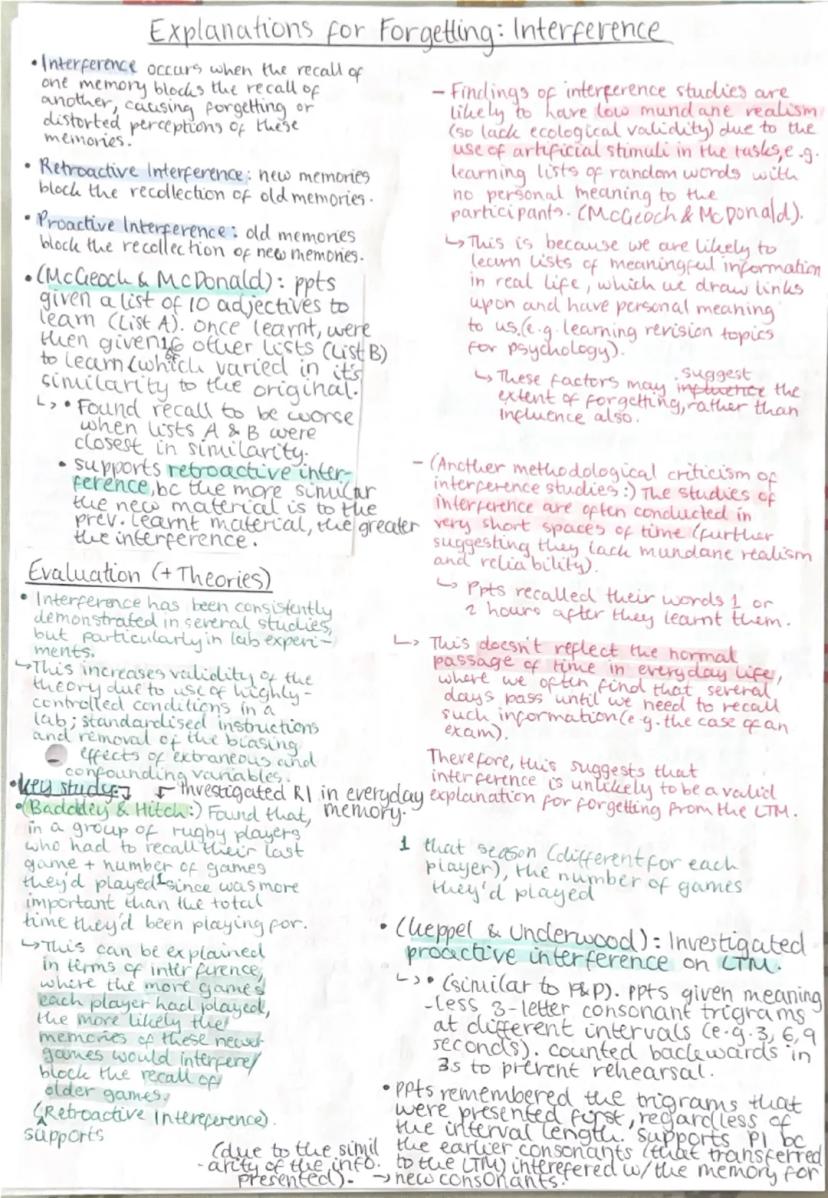 Explanations for Forgetting: Interference
• Interference occurs when the recall of
one memory blocks the recall of
another, causing forgetting or
distorted perceptions of these
memories.
• Retroactive Interference: new memories
block the recollection of old memories.
• Proactive Interference: old memories
block the recollection of new memories.
• (McGeoch & McDonald): ppts
given a list of 10 adjectives to
learn (List A). Once learnt, were
then given 6 other lists (List B)
to learn (which varied in it's
similarity to the original.
↳ • Found recall to be worse
when lists A & B were
closest in similarity.
• supports retroactive inter-
ference, bc the more simular
the new material is to the
prev. learnt material, the greater
the interference.
Evaluation (+ Theories)
• Interference has been consistently
demonstrated in several studies,
but particularly in lab experi-
ments.
↳ This increases validity of the
theory due to use of highly-
controlled conditions in a
lab; standardised instructions
and removal of the biasing
effects of extraneous and
confounding variables.
• Key study: Investigated RI in everyday
memory.
• (Baddeley & Hitch:) Found that,
in a group of rugby players
who had to recall their last
game + number of games
they'd played¹ since was more
important than the total
time they'd been playing for.
↳ This can be explained
in terms of interference,
where the more games
each player had played,
the more likely the
memories of these newer
games would interfere/
block the recall of
older games.
(Retroactive Intereference).
^supports
- Findings of interference studies are
likely to have low mundane realism
(so lack ecological validity) due to the
use of artificial stimuli in the tasks, e.g.
learning lists of random words with
no personal meaning to the
participants. (McGeoch & McDonald).
↳ This is because we are likely to
learn lists of meaningful information
in real life, which we draw links
upon and have personal meaning
to us. (e.g. learning revision topics
for psychology).
suggest
↳ These factors may influence the
extent of forgetting, rather than
influence also.
- (Another methodological criticism of
interference studies:) The studies of
interference are often conducted in
very short spaces of time (further
suggesting they lack mundane realism
and reliability).
↳ Ppts recalled their words 1 or
2 hours after they learnt them.
↳ This doesn't reflect the normal
passage of time in everyday life,
where we often find that several
days pass until we need to recall
such information (e.g. the case of an
exam).
Therefore, this suggests that
interference is unlikely to be a valid
explanation for forgetting from the LTM.
1 that season (different for each
player), the number of games
they'd played
• (Keppel & Underwood): Investigated
proactive interference on LTM.
↳ • (similar to P&P). ppts given meaning
-less 3-letter consonant trigrams
at different intervals (e.g. 3, 6, 9
seconds). counted backwards in
3s to prevent rehearsal.
• ppts remembered the trigrams that
were presented first, regardless of
the interval length. Supports PI bc
the earlier consonants (that transferred
to the LTM) interefered w/ the memory for
→ new consonants.
(due to the simil
-arity of the info.
presented).